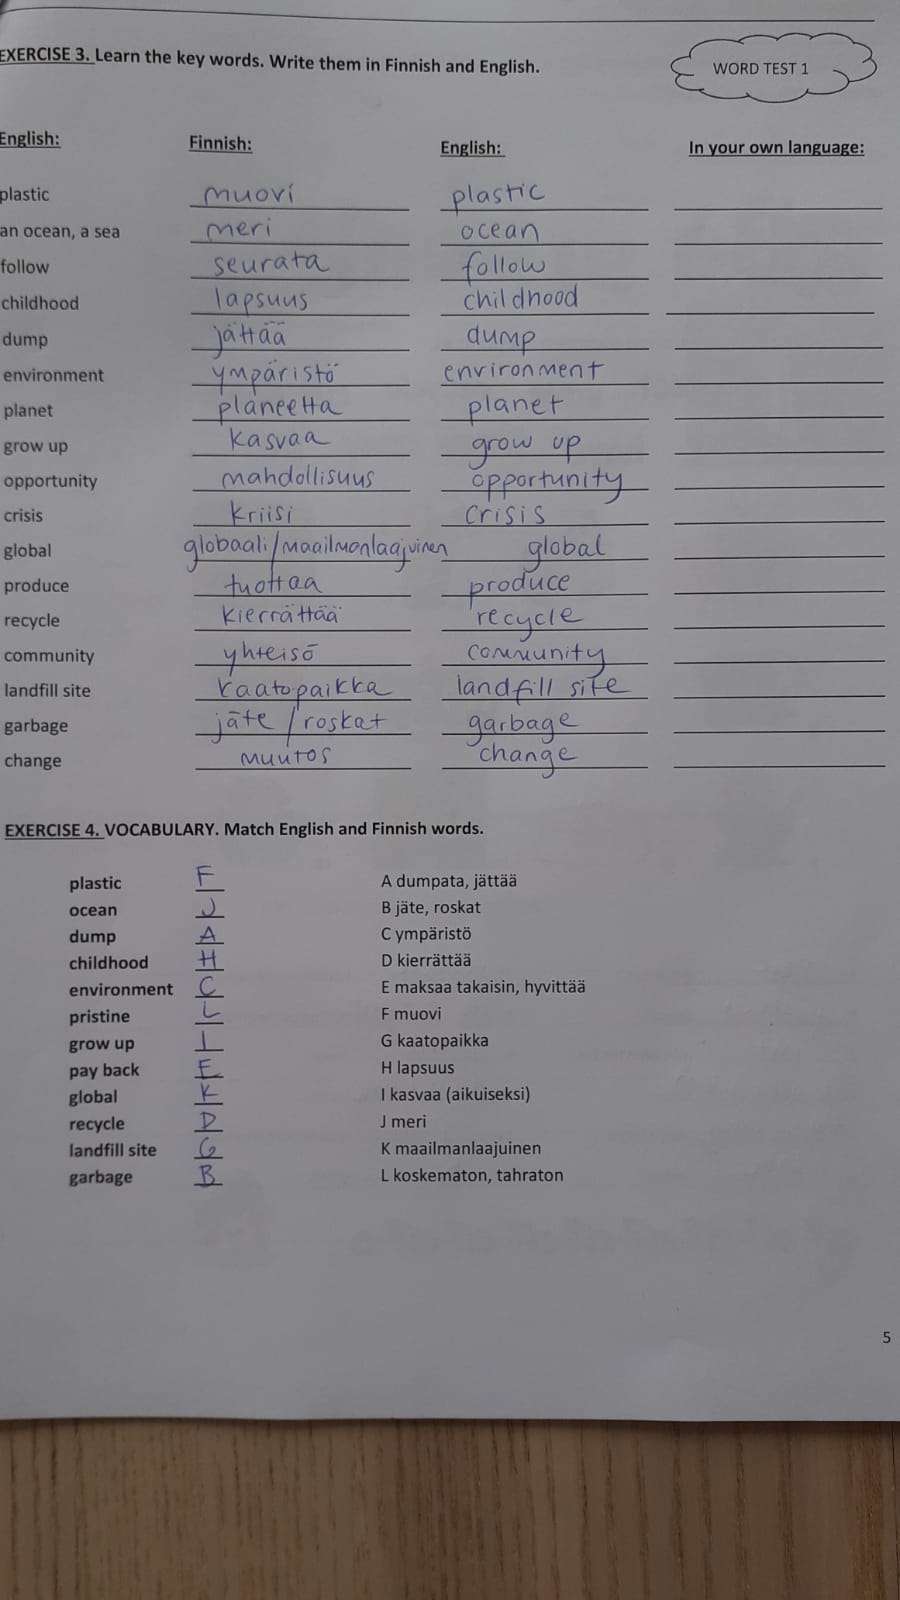 EXERCISE 3. Learn the key words. Write them in Finnish and English.
WORD TEST 1
English: Finnish: English: In your own language:
plastic muovi plastic
an ocean, a sea meri ocean
follow seurata follow
childhood lapsuus childhood
dump jättää dump
environment ympäristö environment
planet planeetta planet
grow up kasvaa grow up
opportunity mahdollisuus opportunity
crisis kriisi crisis
global globaali/maailmanlaajuinen global
produce tuottaa produce
recycle kierrättää recycle
community yhteisö community
landfill site kaatopaikka landfill site
garbage jäte/roskat garbage
change muutos change
EXERCISE 4. VOCABULARY. Match English and Finnish words.
plastic F A dumpata, jättää
ocean J B jäte, roskat
dump A C ympäristö
childhood H D kierrättää
environment C E maksaa takaisin, hyvittää
pristine L F muovi
grow up I G kaatopaikka
pay back E H lapsuus
global K I kasvaa (aikuiseksi)
recycle D J meri
landfill site G K maailmanlaajuinen
garbage B L koskematon, tahraton
5